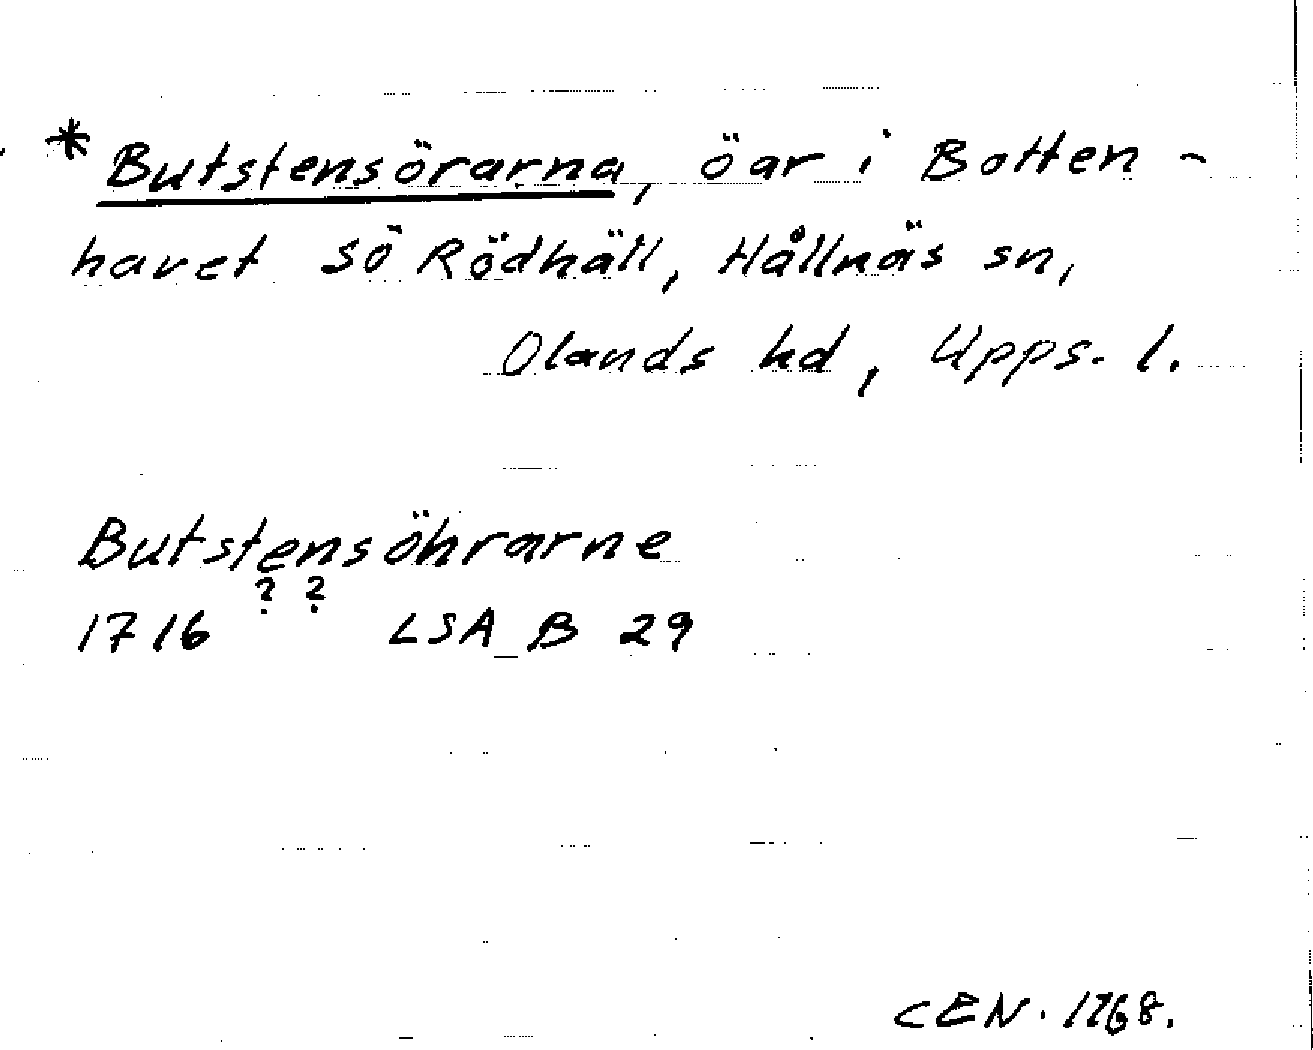 *Butstensörarna, öar i Botten-
havet SÖ Rödhäll, Hållnäs sn,
Olands hd, Upps. l.
Butstensöhrarne
? ?
1716 LSA B 29
CEN. 1968.